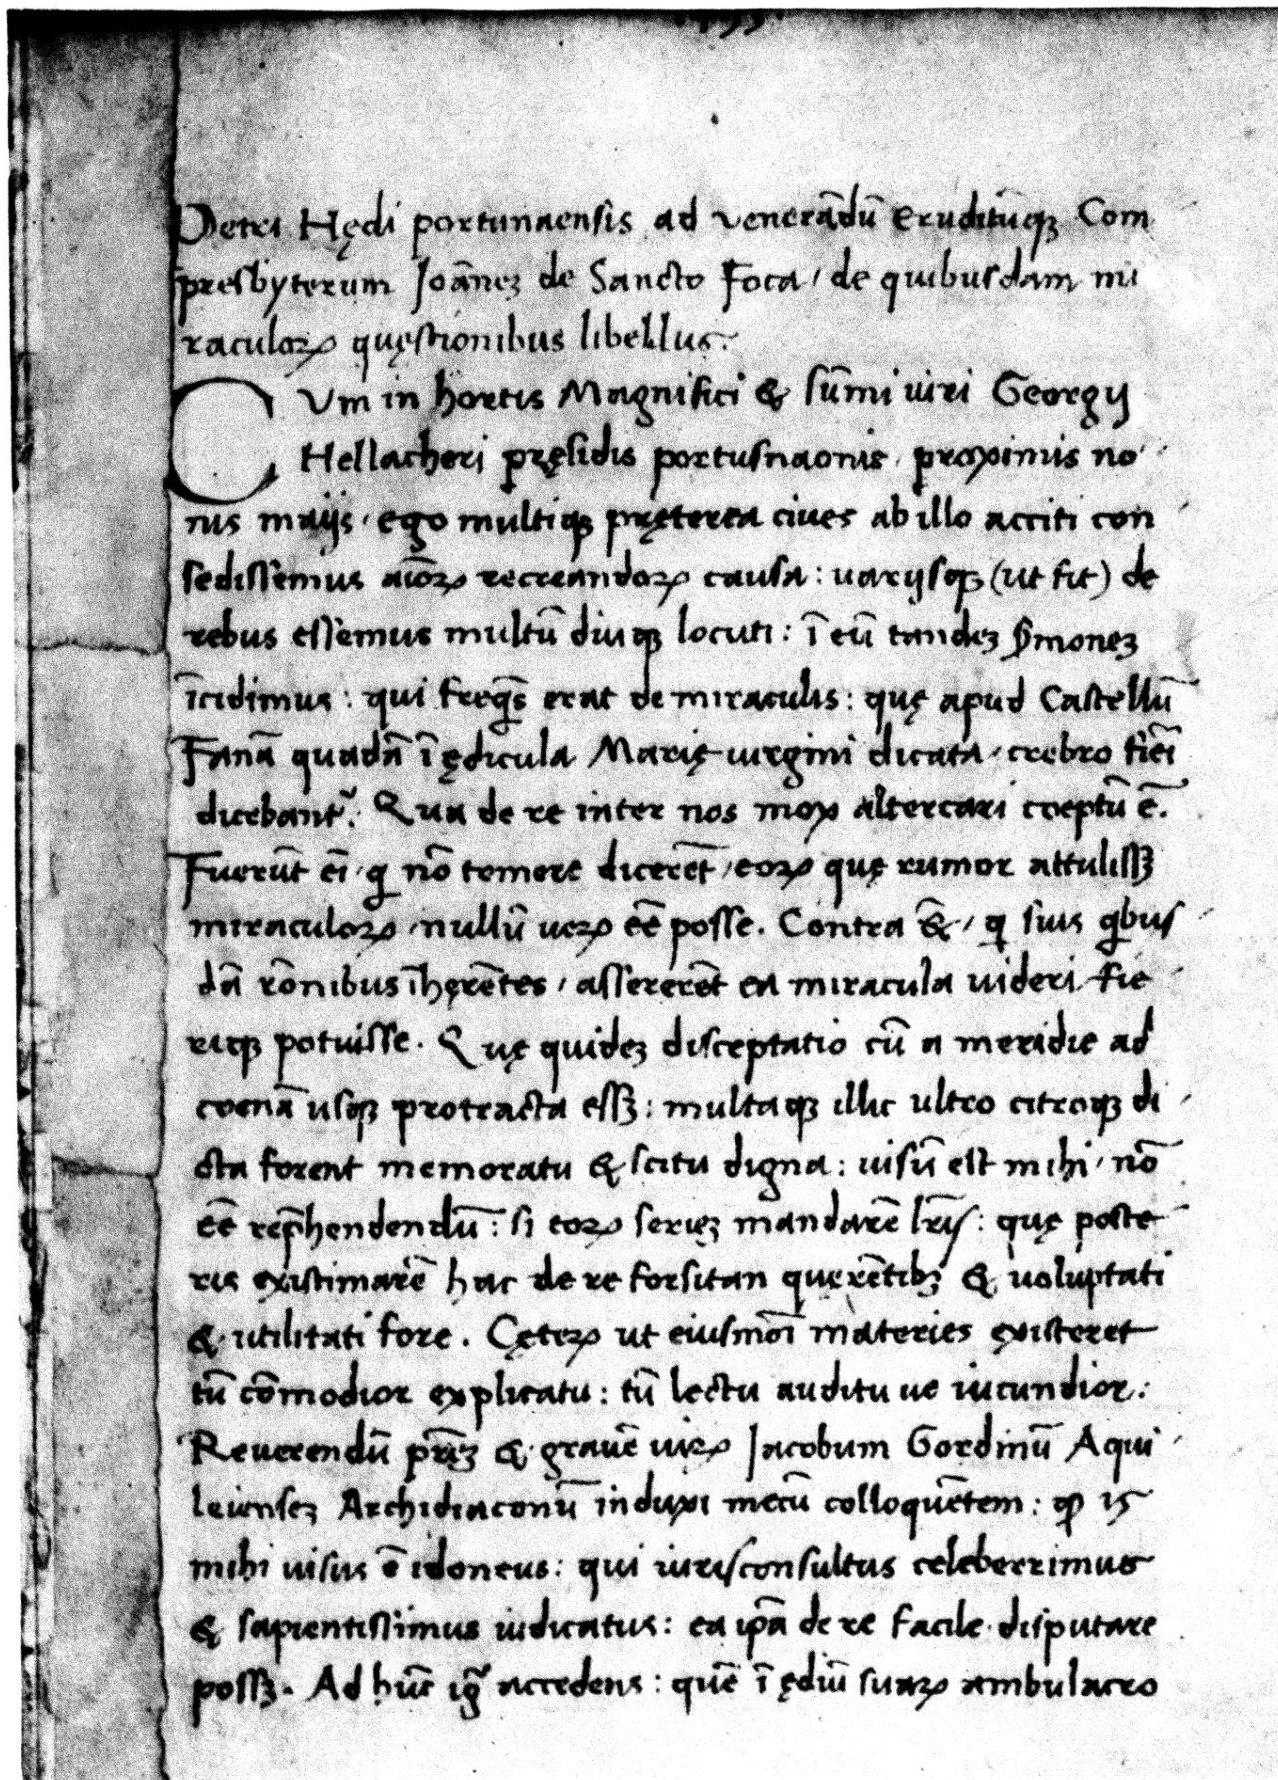 Petri Hędi portunaensis ad venerādū eruditūqꝫ Com
presbyterum Joānēꝫ de Sancto Foca / de quibusdam mi
raculoꝝ quęstionibus libellus.
CVm in hortis Magnifici & sūmi uiri Georgij
Hellacheri pręsidis portusnaonis, proximis no
nis maijs, ego multiqꝫ pręterea ciues ab illo acciti con
sedissemus aīoꝝ recreandoꝝ causa: uarijsqꝫ (ut fit) de
rebus essemus multū diuqꝫ locuti: ī eū tandeꝫ s̄moneꝫ
īcidimus: qui freq̄ns erat de miraculis: quę apud Castellū
Fanā quadā ī ędicula Marię uirgini dicata, crebro fiēī
dicebant᷑. Qua de re inter nos mox altercari coeptū ē.
Fuerūt eī, q nō temere dicerēt, eoꝝ quę rumor attulissꝫ
miraculoꝝ, nullū ueꝝ eē posse. Contra &̄, q suis qbus
dā rōnibus īhęrētes, assererēt ea miracula uideri fie
riqꝫ potuisse. Quę quideꝫ disceptatio cū a meridie ad
coenā usqꝫ protracta essꝫ: multaqꝫ illic ultro citroqꝫ di
cta forent memoratu & scitu digna: uisū est mihi, nō
eē rep̄hendendū: si eoꝝ serieꝫ mandarē lr̄is: quę poste
ris existimarē hac de re forsitan querētibꝫ & uoluptati
& utilitati fore. Cęteꝝ ut eiusmōī materies existeret
tū cōmodior explicatu: tū lectu auditu ue iucundior:
Reuerendū pr̄eꝫ & grauē uiꝝ Jacobum Gordinū Aqui
leienseꝫ Archidiaconū induxi mecū colloquētem: ꝙ is
mihi uisus ē idoneus: qui iurisconsultus celeberrimus
& sapientissimus iudicatus: ea ip̄a de re facile disputare
possꝫ. Ad hūc ig̃ accedens: quē ī ędiū suaꝝ ambulacro